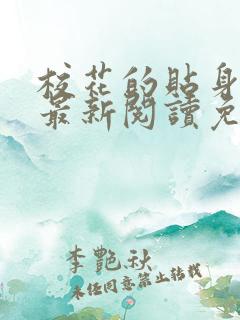 校花的貼身
最新閱讀免
李艷秋
未经同意禁止转载